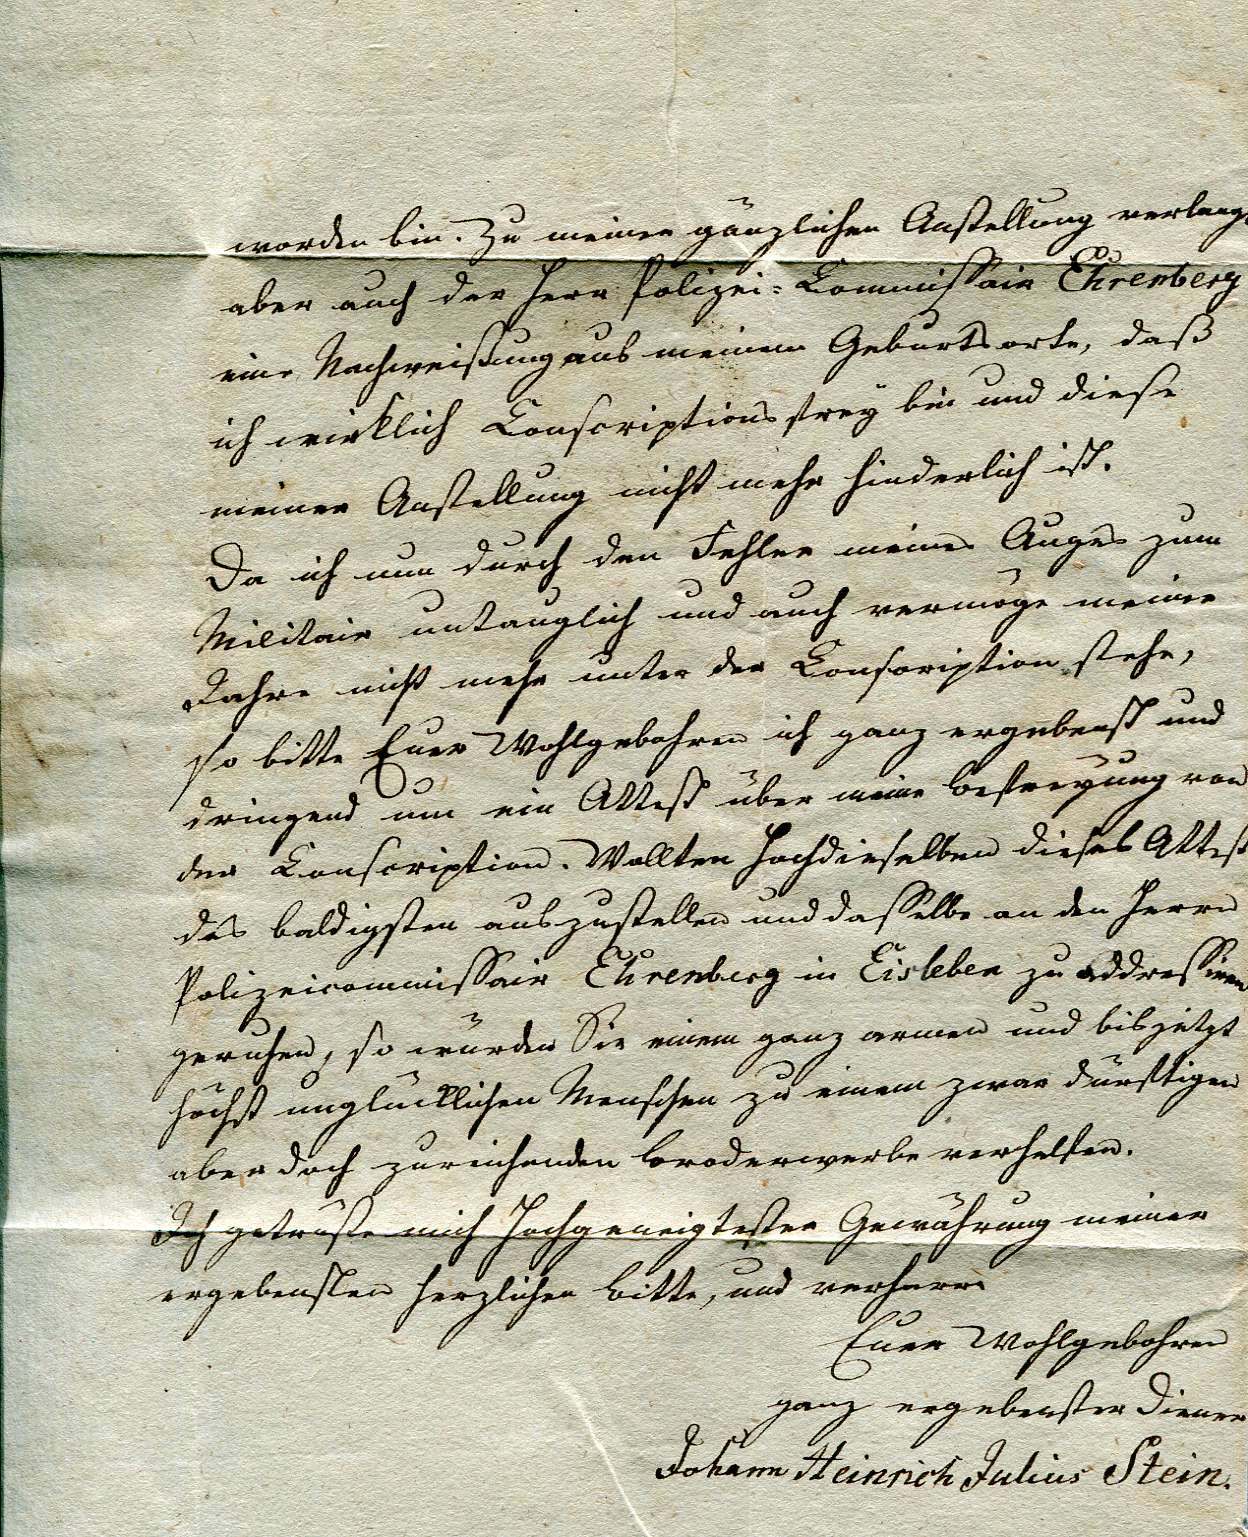 worden bin. Zu meiner gänzlichen Anstellung verlangt
aber auch der Herr Polizei-Commissair Ehrenberg
eine Nachweißung aus meinem Geburtsorte, daß
ich wirklich Conscriptionsfrey bin und diese
meiner Anstellung nicht mehr hinderlich ist.
Da ich nun durch den Fehler meines Auges zum
Militair untauglich und auch vermöge meiner
Jahre nicht mehr unter der Conscription stehe,
so bitte Euer Wohlgebohren ich ganz ergebenst und
dringend um ein Attest über meine Befreyung von
der Conscription. Wollten Hochdieselben dieses Attest
des baldigsten auszustellen und dasselbe an den Herrn
Polizeicommissair Ehrenberg in Eisleben zu addressiren
geruhen, so würden Sie einem ganz armen und bis jetzt
höchst unglücklichen Menschen zu einem zwar dürftigen
aber doch zureichenden Broderwerbe verhelfen.
Ich getröste mich hochgeneigtester Gewährung meiner
ergebensten herzlichen Bitte, und verharre
Euer Wohlgebohren
ganz ergebenster Diener
Johann Heinrich Julius Stein.